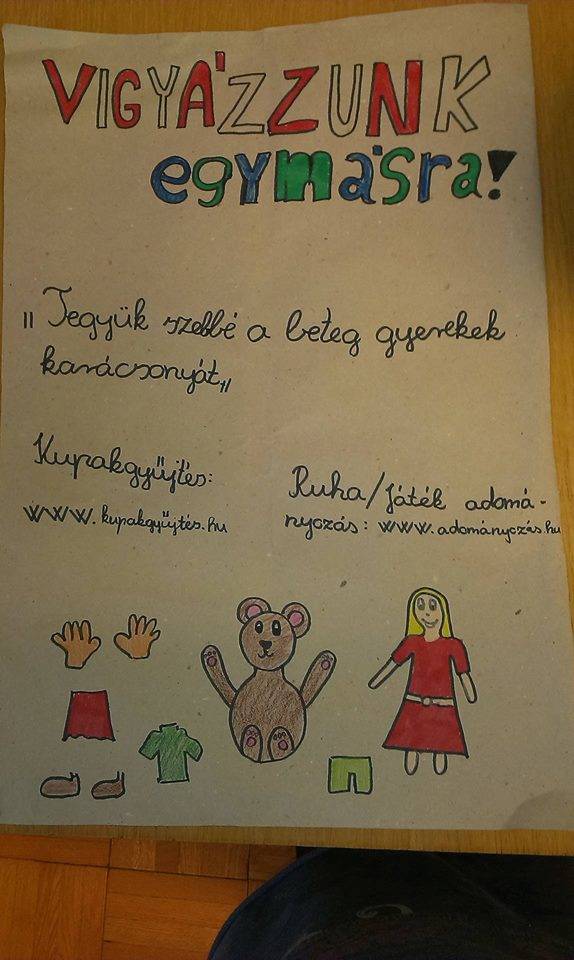 VIGYÁZZUNK
egymásra!
„Tegyük szebbé a beteg gyerekek
karácsonyát„
Kupakgyűjtés:
www.kupakgyűjtés.hu
Ruha/játék adomá-
nyozás: www.adományozás.hu